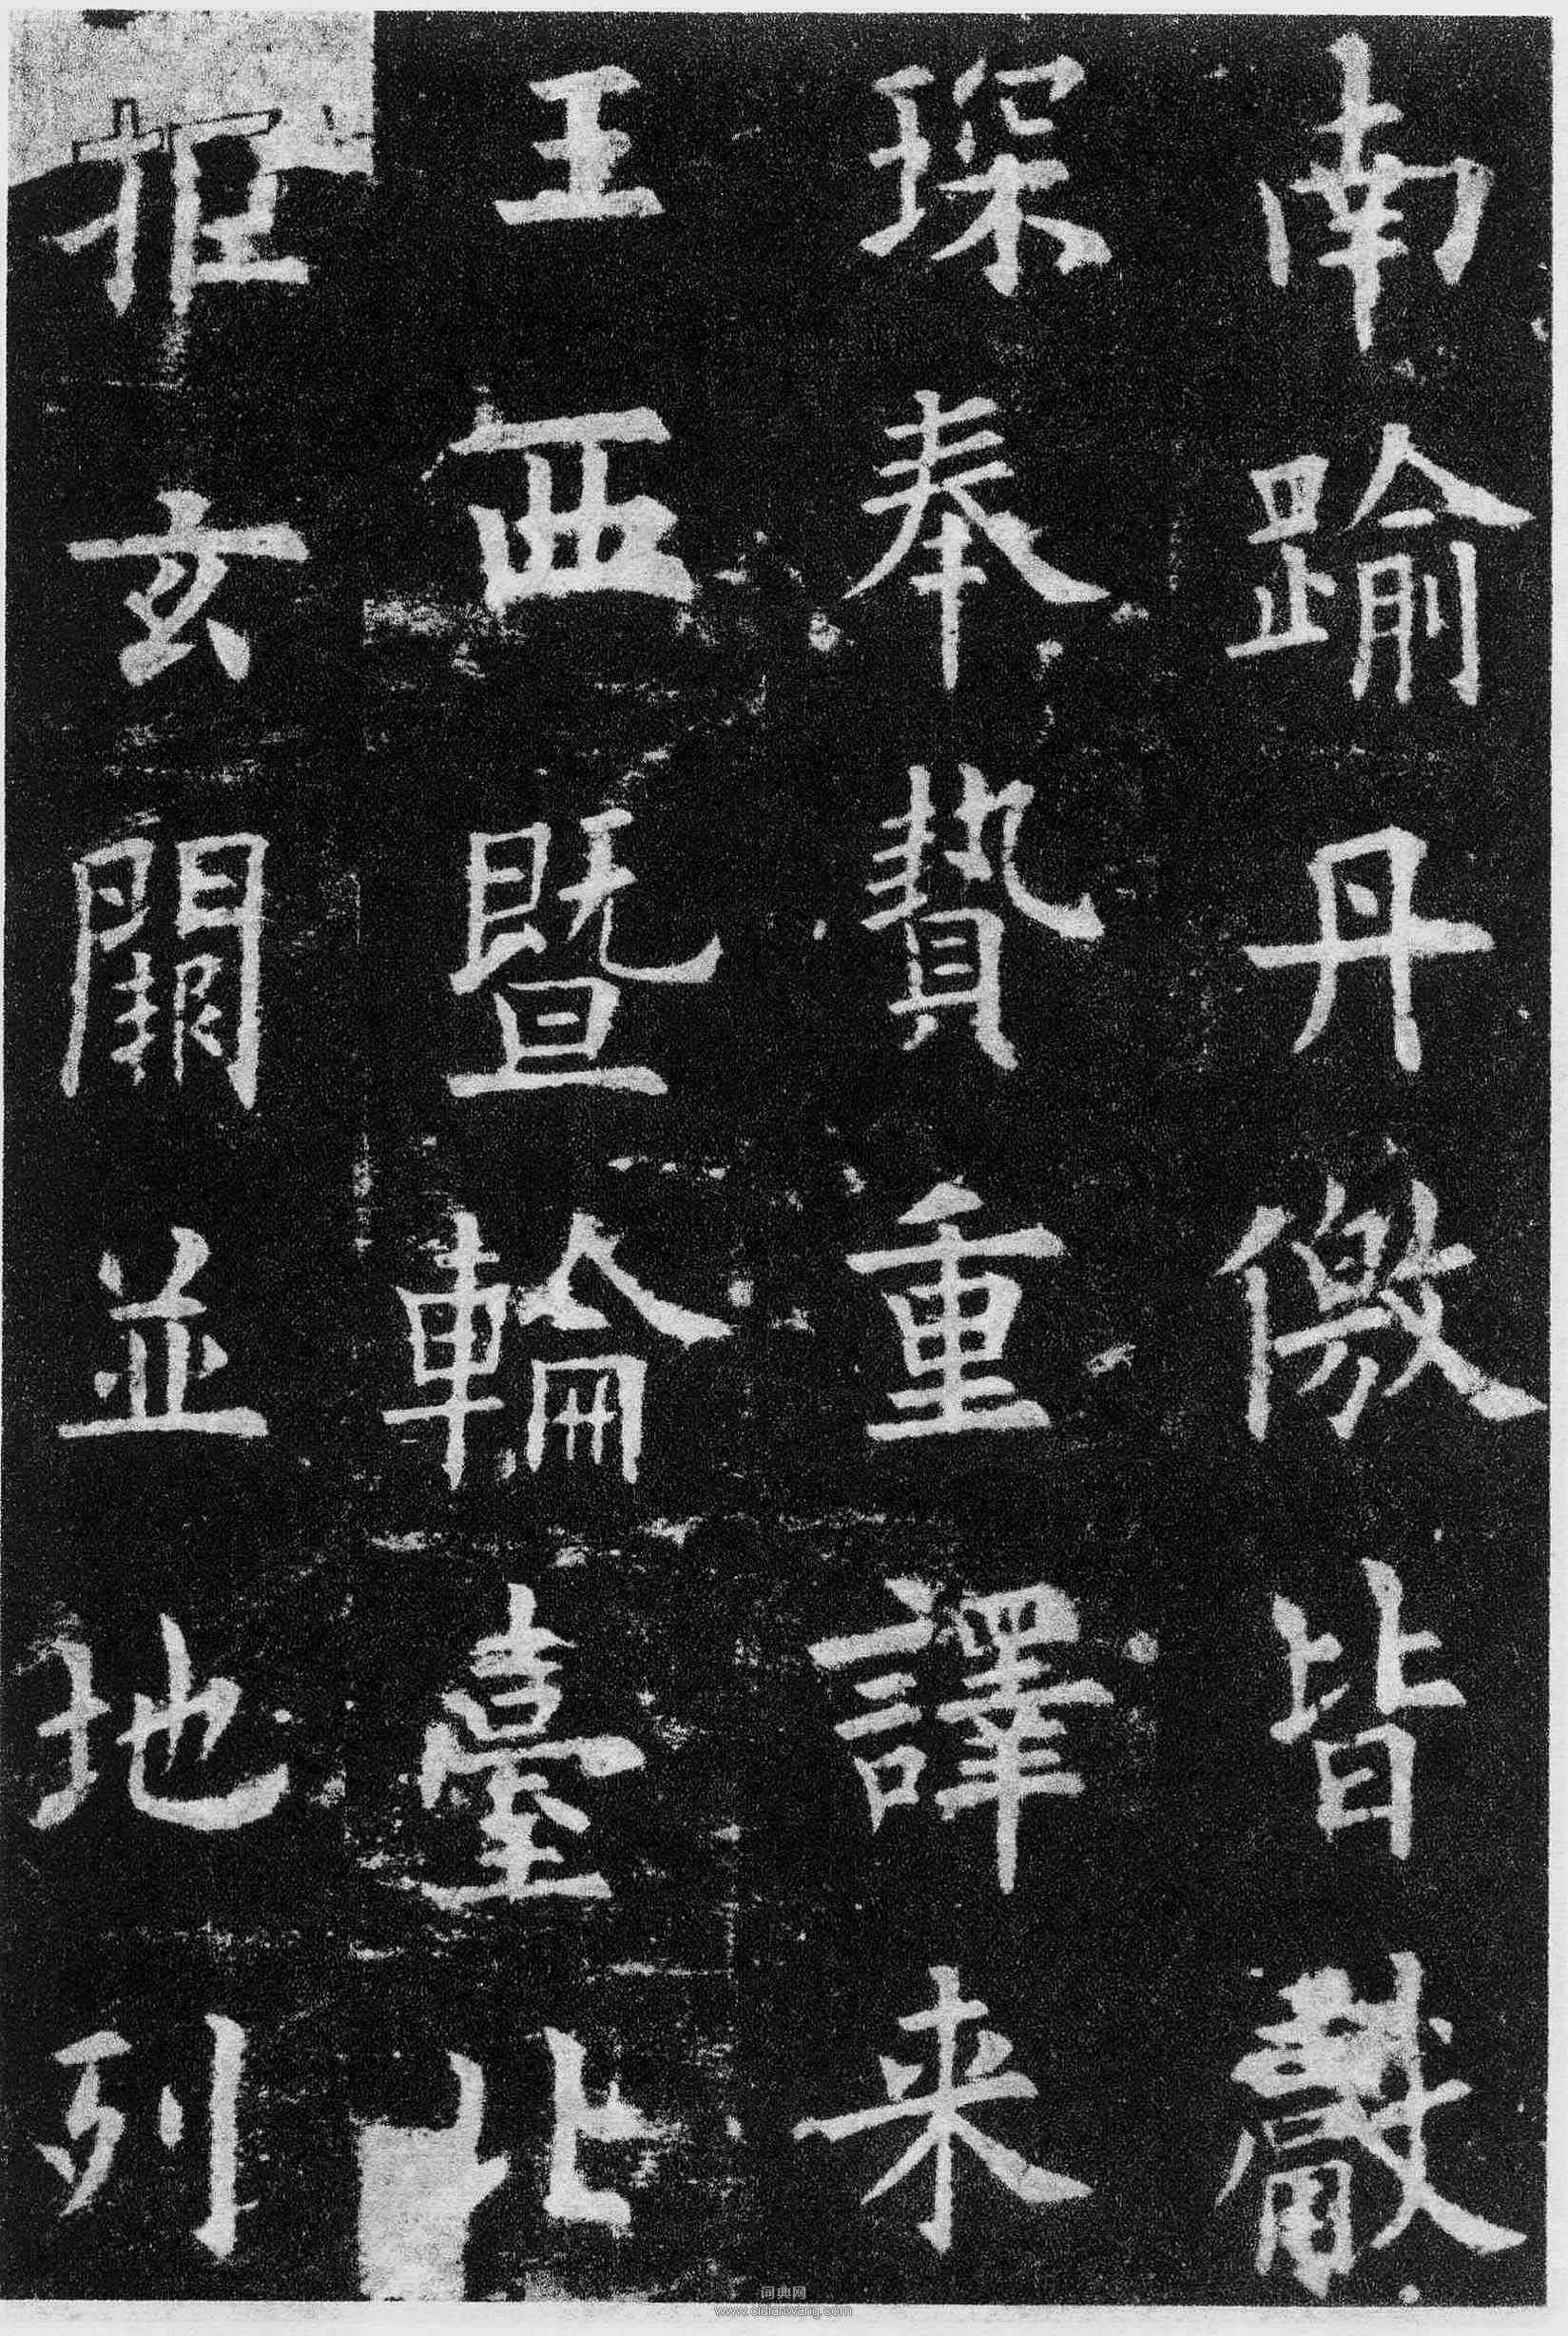 南踰丹儌皆獻
琛奉贄重譯来
王西暨輪臺北
拒玄闕並地列
词典网
www.cidianwang.com